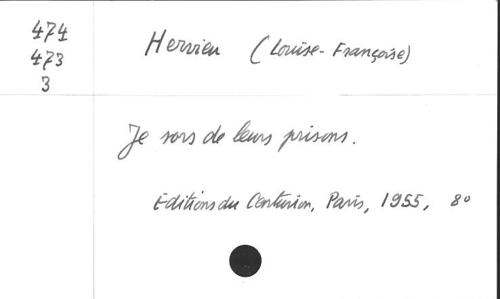 474
473
3
Hervieu (Louise-Françoise)
Je sors de leurs prisons.
Editions du Centurion, Paris, 1955, 8°